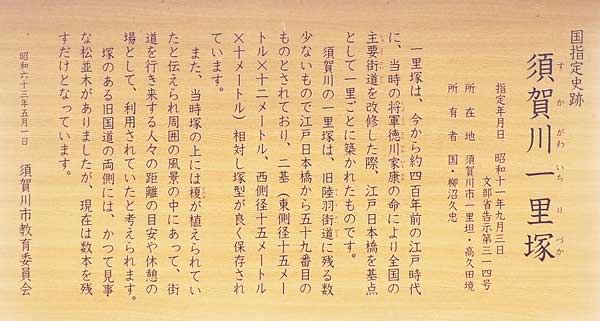 国指定史跡
須賀川一里塚
すかがわいちりづか
指定年月日 昭和十一年九月三日
文部省告示第三一四号
所在地 須賀川市一里坦・高久田境
所有者 国・柳沼久忠
一里塚は、今から約四百年前の江戸時代
に、当時の将軍徳川家康の命により全国の
主要街道を改修した際、江戸日本橋を基点
として一里ごとに築かれたものです。
須賀川の一里塚は、旧陸羽街道に残る数
少ないもので江戸日本橋から五十九番目の
ものとされており、二基(東側径十五メー
トル×十二メートル、西側径十五メートル
×十メートル)相対し塚型が良く保存され
ています。
また、当時塚の上には榎が植えられてい
たと伝えられ周囲の風景の中にあって、街
道を行き来する人々の距離の目安や休憩の
場として、利用されていたと考えられます。
塚のある旧国道の両側には、かつて見事
な松並木がありましたが、現在は数本を残
すだけとなっています。
昭和六十三年五月一日 須賀川市教育委員会